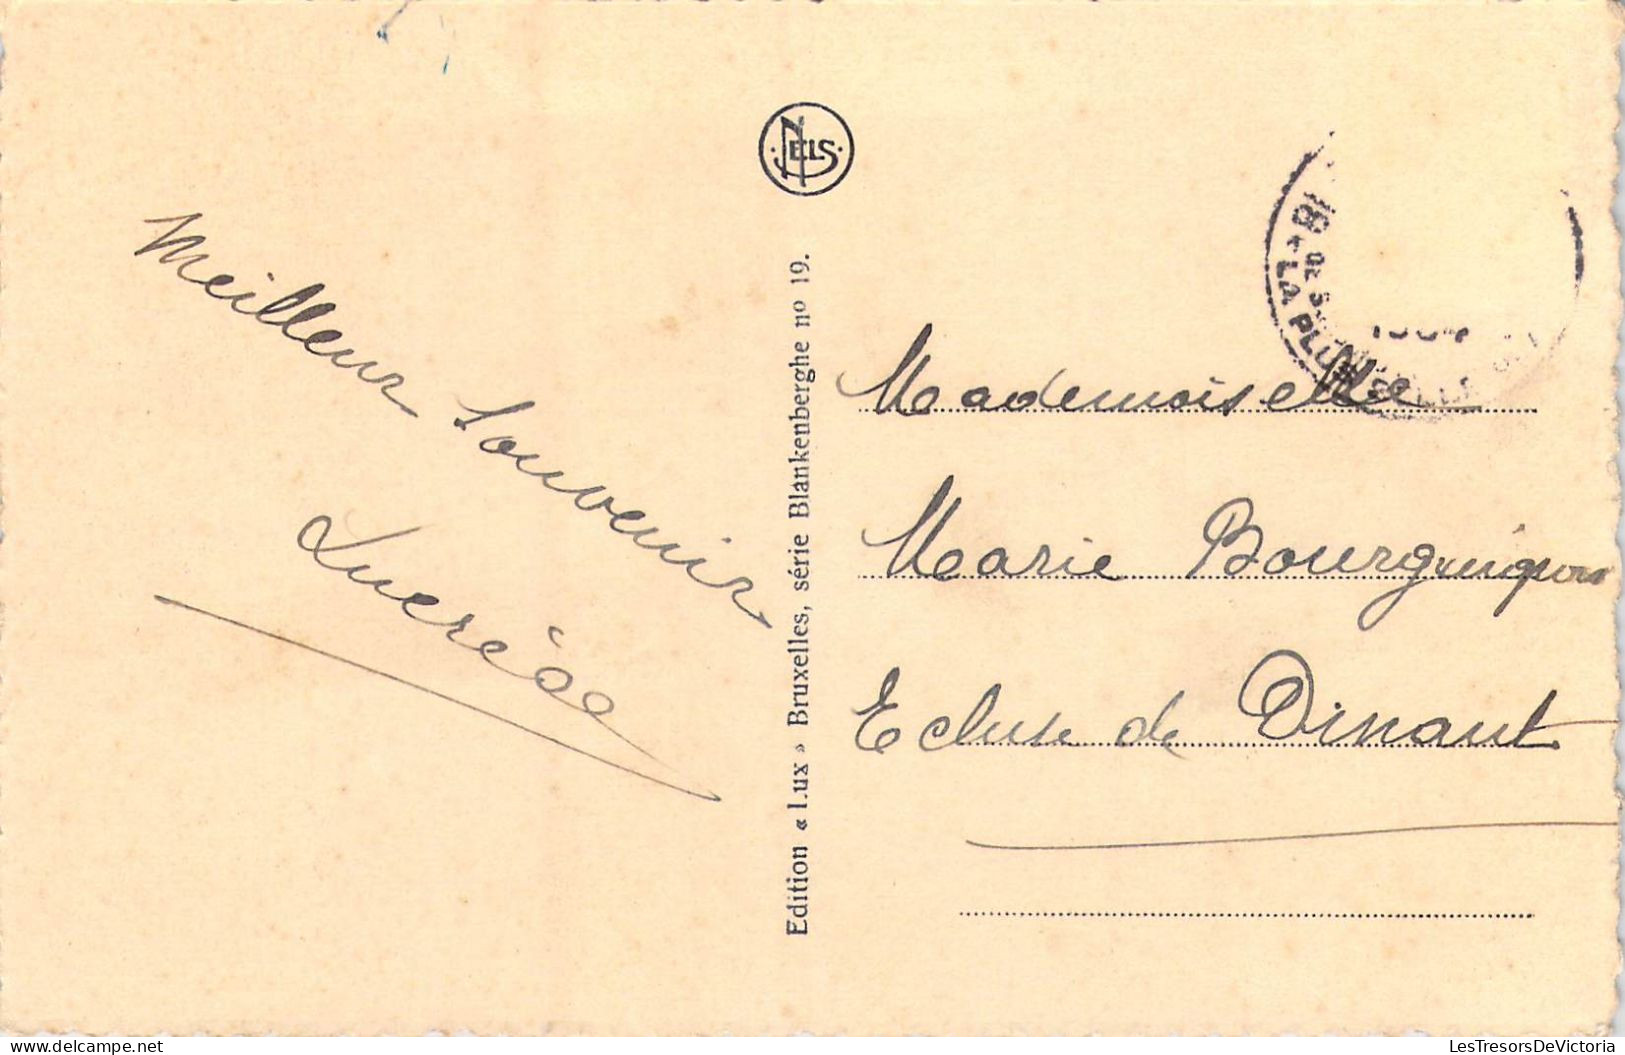 Meilleur Souvenir
NELS
Edition « Lux » Bruxelles, série Blankenberghe nº 19.
18
1934
Mademoiselle
Marie Bourguignon
Ecluse de Dinant
LesTresorsDeVictoria